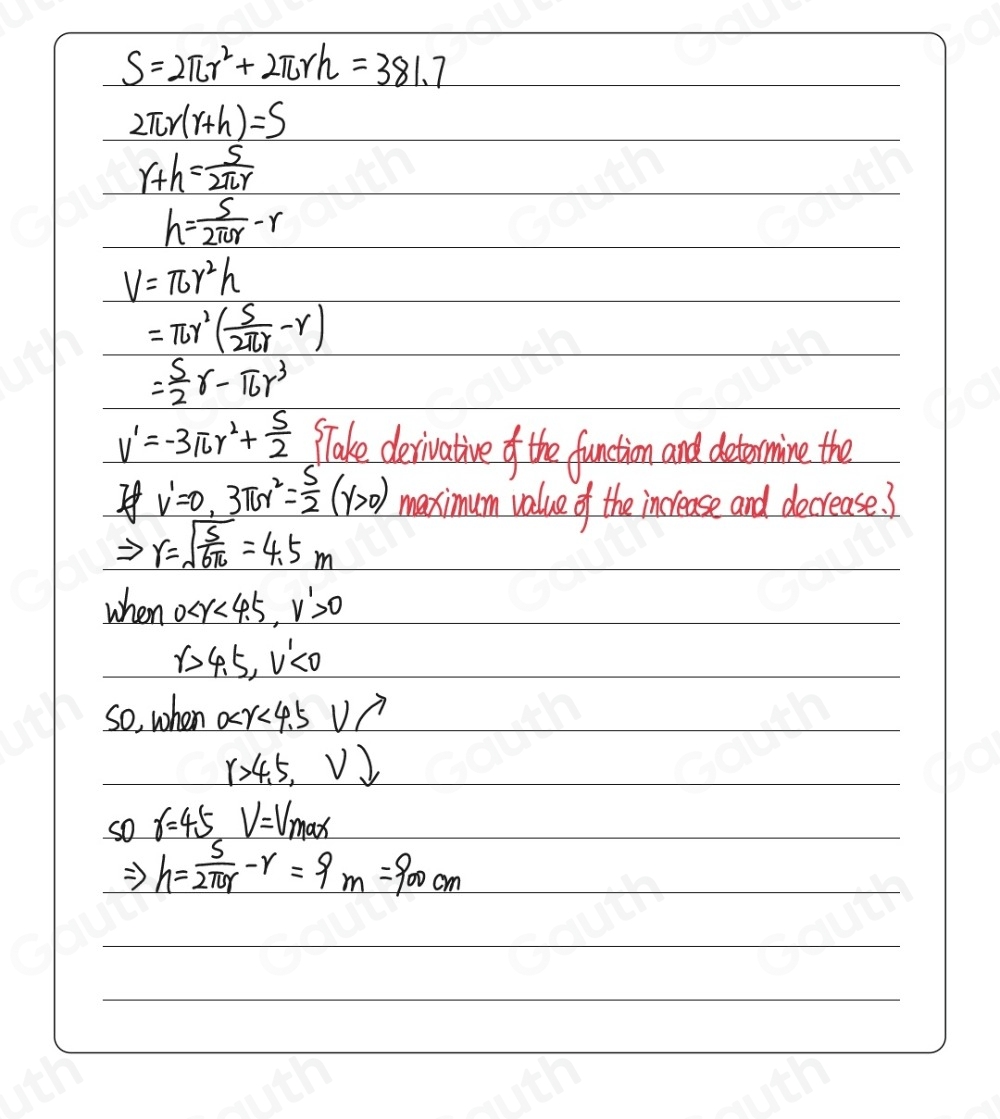 S = 2πr² + 2πrh = 381.7
2πr(r+h) = S
r+h = S/2πr
h = S/2πr - r
V = πr²h
= πr²(S/2πr - r)
= S/2 r - πr³
V' = -3πr² + S/2 {Take derivative of the function and determine the
If V'=0, 3πr² = S/2 (r>0) maximum value of the increase and decrease.}
⇒ r = √(S/6π) = 4.5 m
when 0<r<4.5, V'>0
r>4.5, V'<0
so, when 0<r<4.5 V↗
r>4.5, V↘
so r=4.5 V=Vmax
⇒ h = S/2πr - r = 9 m = 900 cm